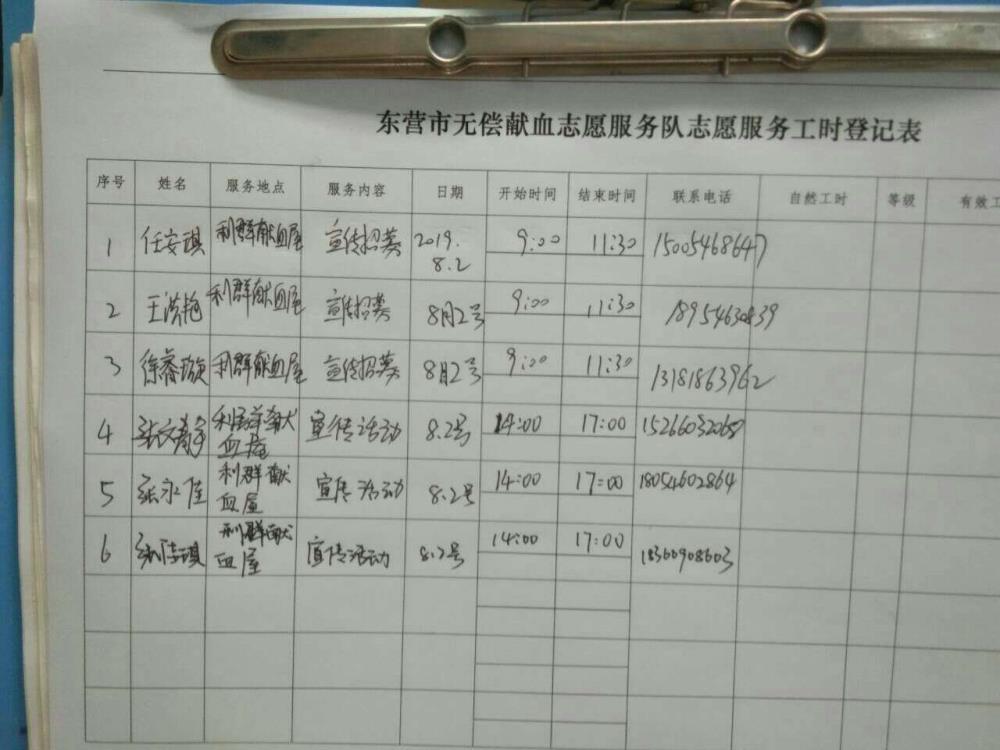 东营市无偿献血志愿服务队志愿服务工时登记表
序号 姓名 服务地点 服务内容 日期 开始时间 结束时间 联系电话 自然工时 等级 有效工
1 任安琪 利群献血屋 宣传招募 2019.8.2 9:00 11:30 15005468647
2 王洪艳 利群献血屋 宣传招募 8月2号 9:00 11:30 18954630839
3 徐睿璇 利群献血屋 宣传招募 8月2号 9:00 11:30 13181863962
4 张文静 利群献血屋 宣传活动 8.2号 14:00 17:00
5 张永佳 利群献血屋 宣传活动 8.2号 14:00 17:00 18054602864
6 利群献血屋 宣传活动 8.2号 14:00 17:00 18360908603